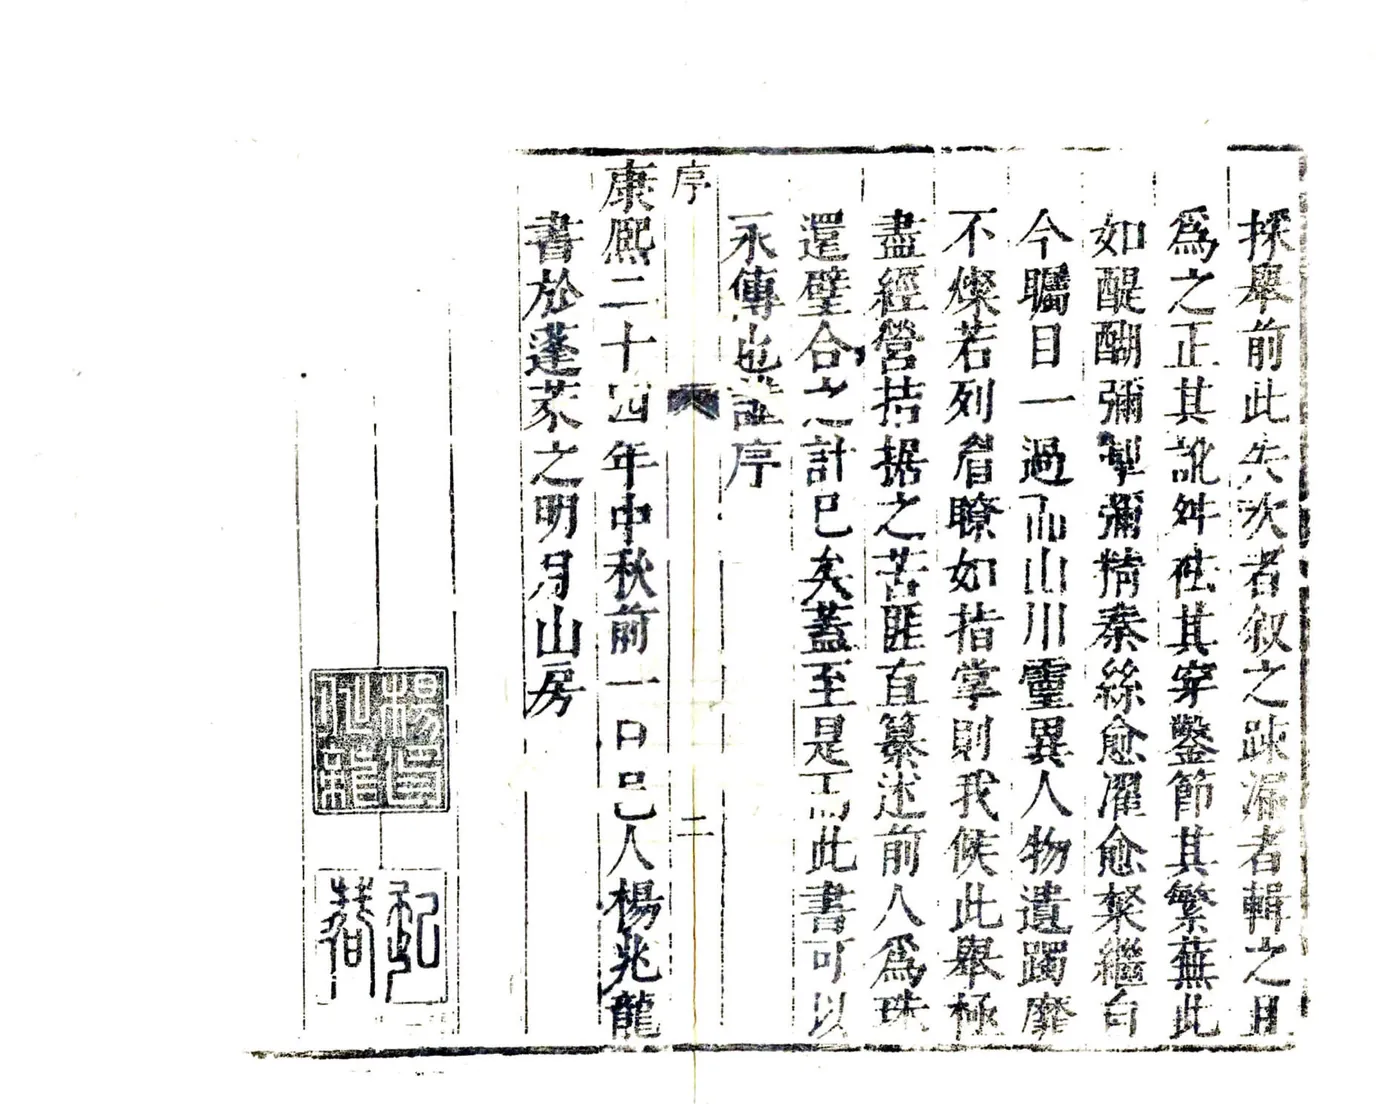 採舉前此失次者叙之踈漏者輯之且
爲之正其訛舛祛其穿鑿節其繁蕪此
如醍醐彌掣彌精秦絲愈濯愈椝繼自
今矚目一過而山川靈異人物遺躅靡
不燦若列眉瞭如指掌則我侯此舉極
盡經營拮据之苦匪直纂述前人爲珠
還璧合之計已矣蓋至是而此書可以
永傳也謹序
序
二
康熙二十四年中秋前一日邑人楊兆龍
書於蓬萊之明月山房
楊兆龍印